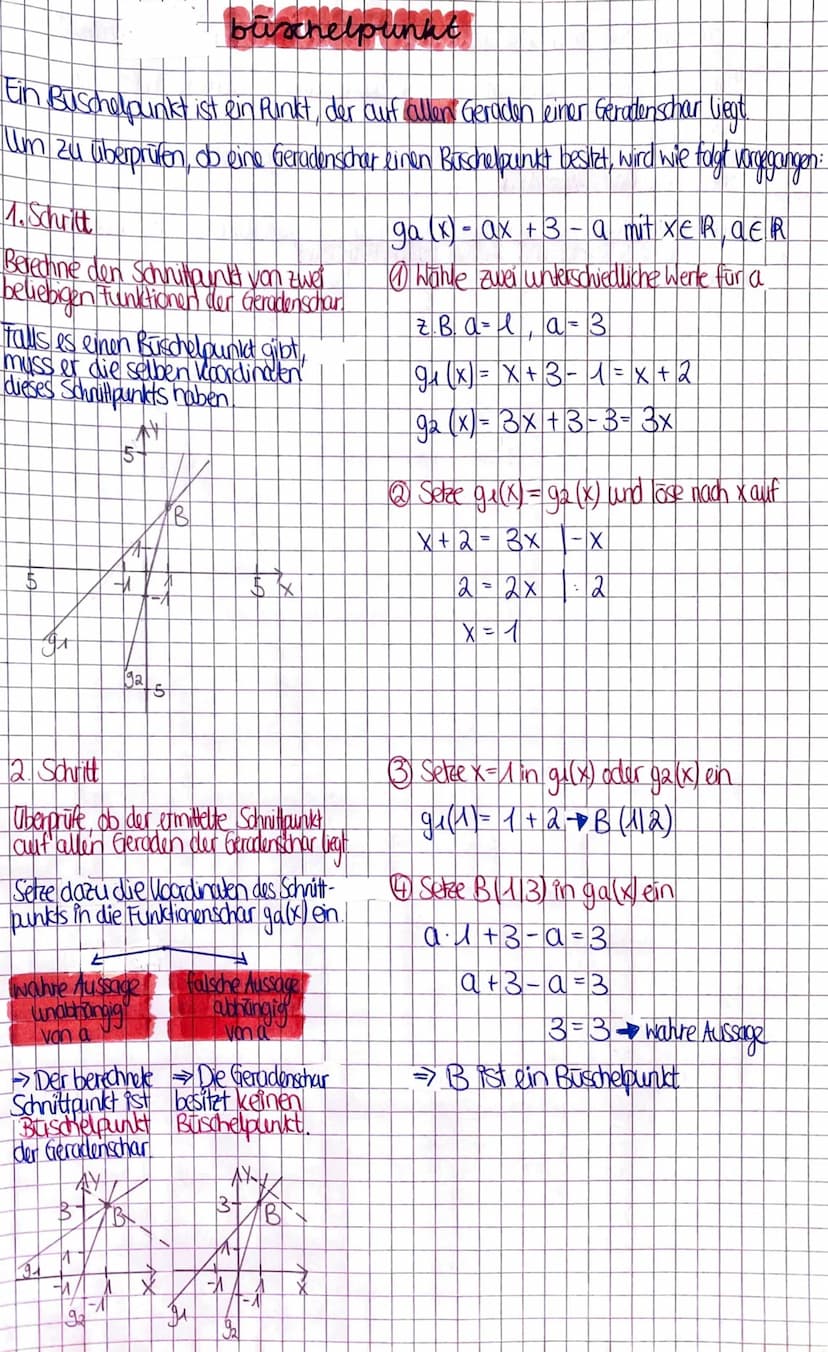 büschelpunkt
Ein Büschelpunkt ist ein Punkt, der auf allen Geraden einer Geradenschar liegt.
Um zu überprüfen, ob eine Geradenschar einen Büschelpunkt besitzt, wird wie folgt vorgegangen:
1. Schritt
Berechne den Schnittpunkt von zwei
beliebigen Funktionen der Geradenschar.
Falls es einen Büschelpunkt gibt,
muss er die selben Koordinaten
dieses Schnittpunkts haben.
y
5
B
1
5
-1
1
-1
5
x
g1
g2
-5
ga(x) = ax + 3 - a mit x∈ℝ, a∈ℝ
① Wähle zwei unterschiedliche Werte für a
z.B. a = 1, a = 3
g1(x) = x + 3 - 1 = x + 2
g2(x) = 3x + 3 - 3 = 3x
② Setze g1(x) = g2(x) und löse nach x auf
x + 2 = 3x |-x
2 = 2x |: 2
x = 1
2. Schritt
Überprüfe, ob der ermittelte Schnittpunkt
auf allen Geraden der Geradenschar liegt
Setze dazu die Koordinaten des Schnitt-
punkts in die Funktionenschar ga(x) ein.
wahre Aussage
unabhängig
von a
falsche Aussage
abhängig
von a
→ Der berechnete
Schnittpunkt ist
Büschelpunkt
der Geradenschar
⇒ Die Geradenschar
besitzt keinen
Büschelpunkt.
y
3
B
1
g1
-1
1
x
-1
g2
y
3
B
1
-1
1
x
-1
g1
g2
③ Setze x=1 in g1(x) oder g2(x) ein
g1(1) = 1 + 2 → B (1|2)
④ Setze B(1|3) in ga(x) ein
a·1 + 3 - a = 3
a + 3 - a = 3
3 = 3 → wahre Aussage
⇒ B ist ein Büschelpunkt